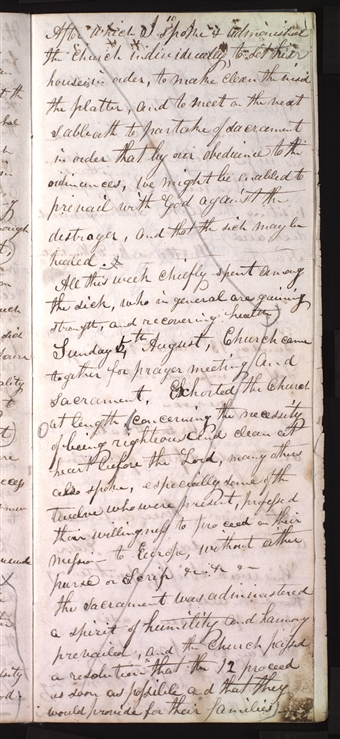 After which I spoke & admonished
the Church individually to set their
house in order, to make clean the inside
the platter, and to meet on the next
sabbath to partake of sacrament
in order that by our obedience to the
ordinances, we might be enabled to
prevail with God against the
destroyer, and that the sick may be
healed.
All this week chiefly spent among
the sick, who in general are gaining
strength, and recovering health
Sunday 4th August, Church came
together for prayer meeting and
sacrament, Exhorted the Church
at length concerning the necessity
of being righteous and clean at
heart before the Lord, many others
also spoke, especially some of the
twelve who were present, professed
their willingness to proceed on their
mission to Europe, without either
purse or scrip &c &c
the sacrament was administered
a spirit of humility and harmony
prevailed, and the Church passed
a resolution that the 12 proceed
as soon as possible and that they
would provide for their families